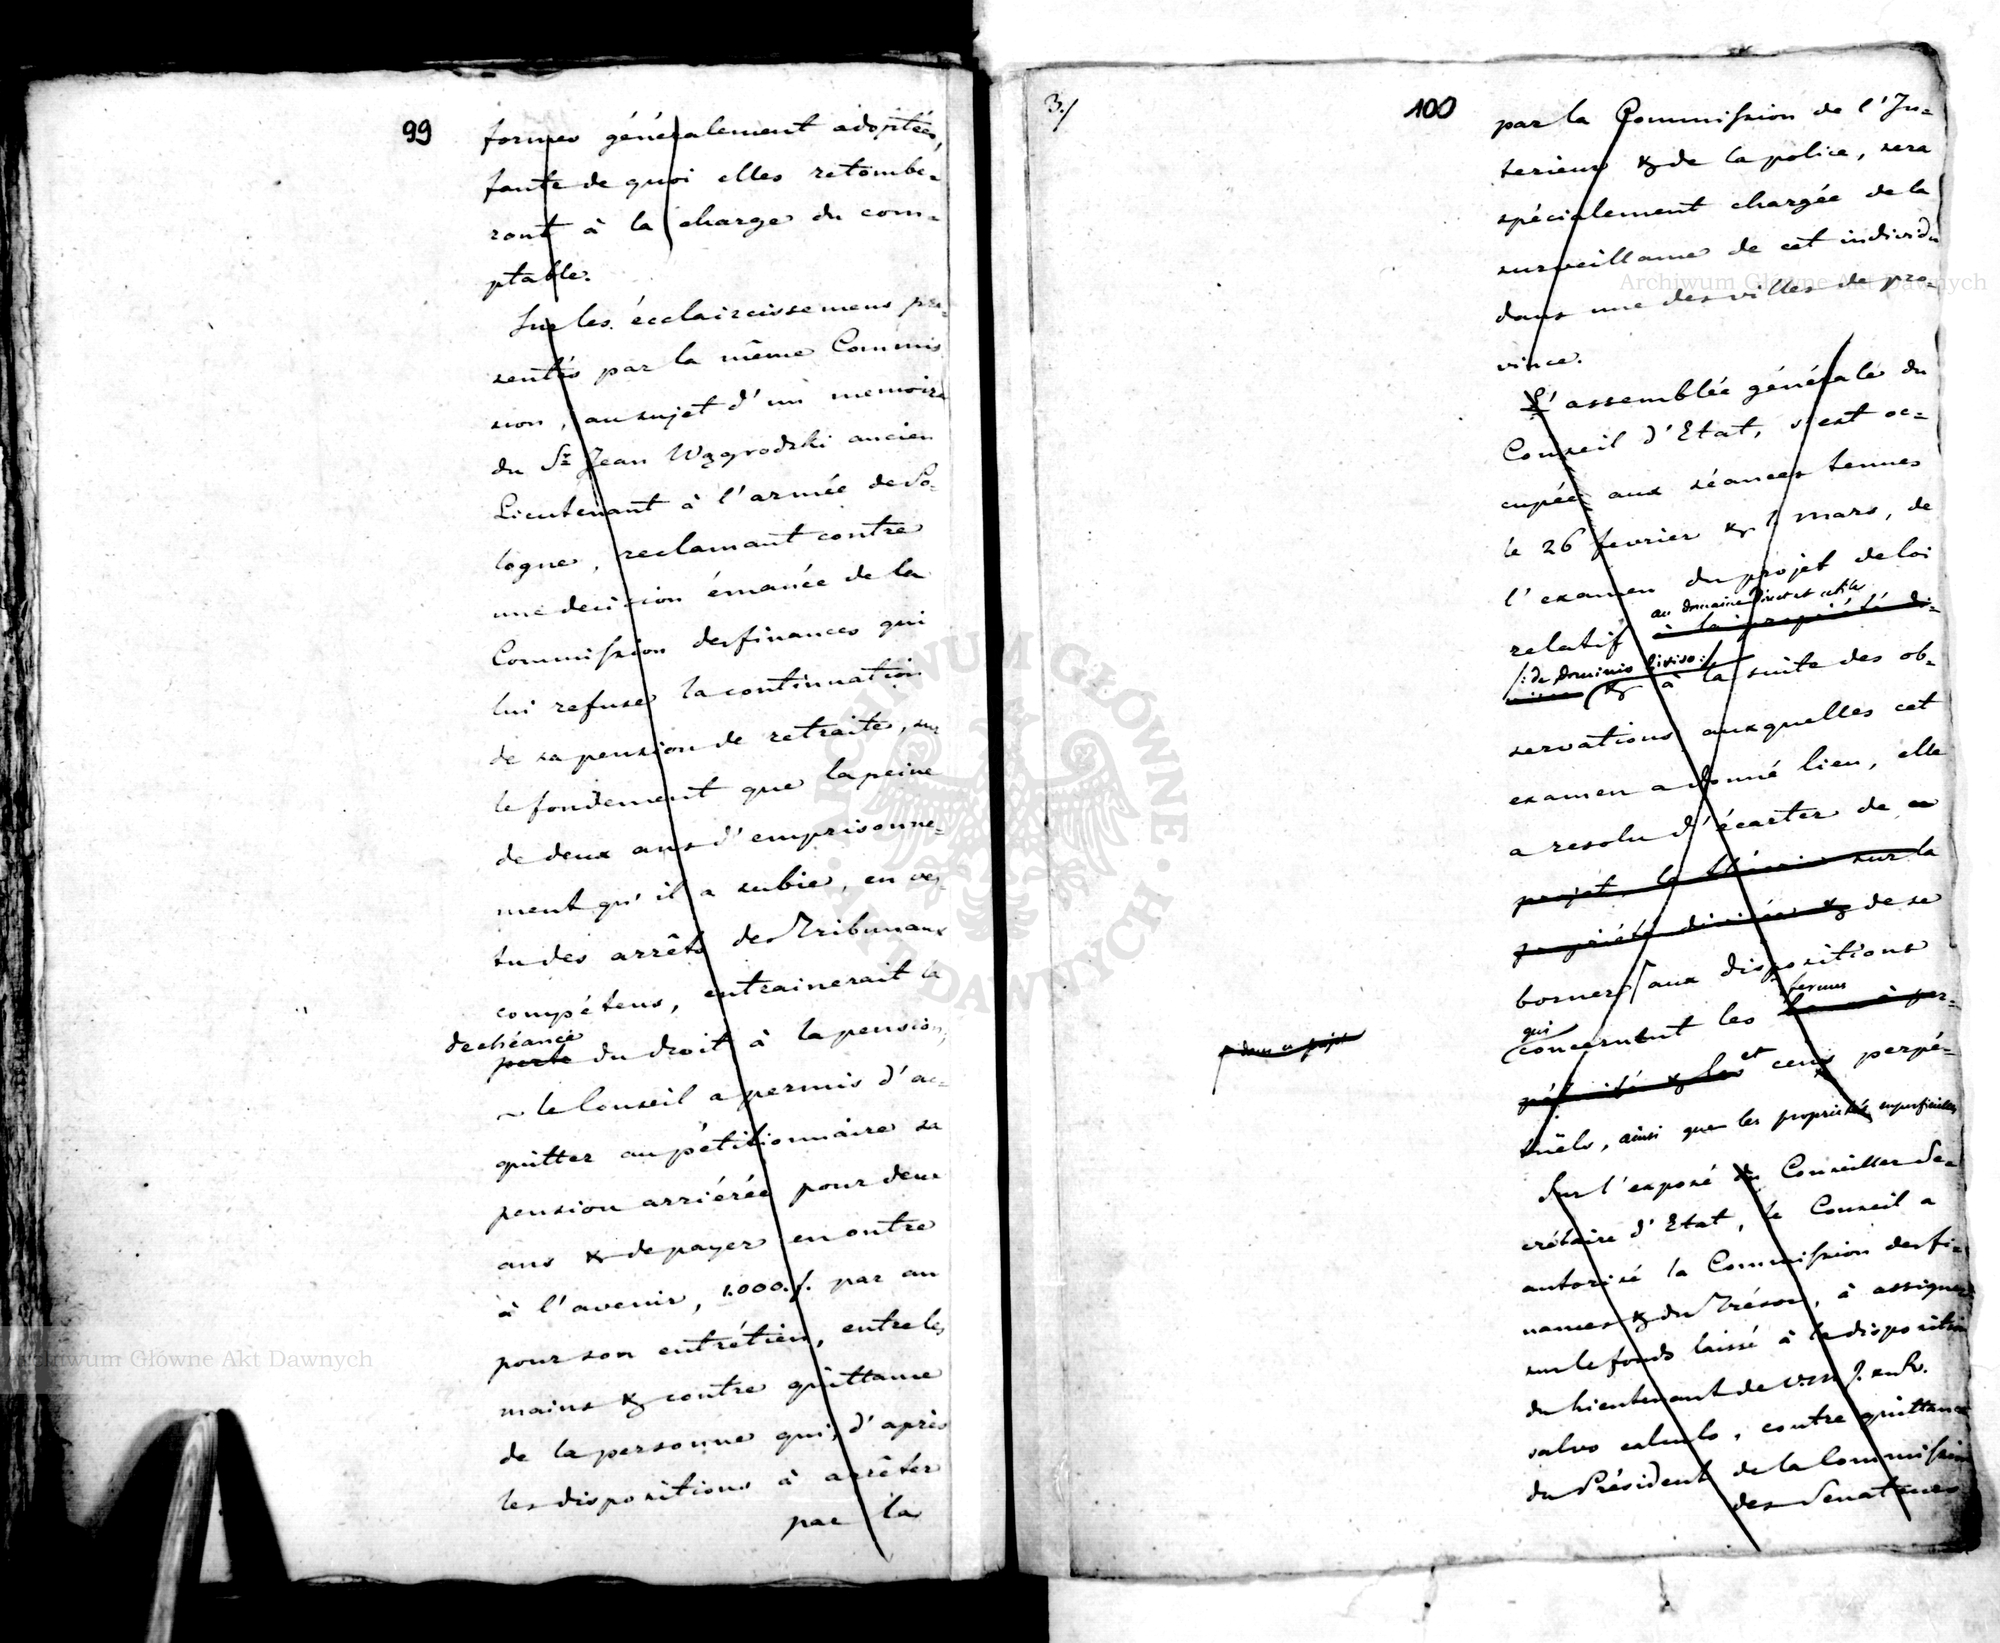 99
formes généralement adoptées,
faute de quoi elles retombe-
ront à la charge du com-
ptable.
Sur les écclaircissemens pre-
sentés par la même Commis
sion, au sujet d'un memoire
du Sr Jean Wągrodzki ancien
Lieutenant à l'armée de Po-
logne, reclamant contre
une decision émanée de la
Commission des finances qui
lui refuse la continuation
de sa pension de retraite, sur
le fondement que la peine
de deux ans d'emprisonne-
ment qu'il a subie, en ver-
tu des arrêts des Tribunaux
compétens, entrainerait la
dechéance
perte du droit à la pension,
~ le Conseil a permis d'ac-
quitter au pétitionnaire sa
pension arriérée pour deux
ans & de payer en outre
à l'avenir, 1.000.f. par an
pour son entrétien, entre les
mains & contre quittance
de la personne qui, d'après
les dispositions à arrêter
par la
3./
100
par la Commission de l'In-
terieur & de la police, sera
spécialement chargée de la
surveillance de cet individu
dans une des villes de pro-
vince.
L'assemblée générale du
Conseil d'Etat, s'est oc-
cupée aux séances tenues
le 26 fevrier & 1 mars, de
l'examen du projet de loi
au domaine direct et utile
relatif à la propriété di-
/: de dominio diviso :/
visée & à la suite des ob-
servations auxquelles cet
examen a donné lieu, elle
a resolu d'écarter de ce
projet, la théorie sur la
propriété divisée & de se
borner aux dispositions
fermes
qui
concernent les
dans ce projet
pétuité & les et cens perpé-
tuels, ainsi que les propriétés superficielles
Sur l'exposé du Conseiller Se-
crétaire d'Etat, le Conseil a
autorisé la Commission des fi-
nances & du Trésor, à assigner
sur le fonds laissé à la disposition
du Lieutenant de
salvo calculo, contre quittance
du Président de la Commission
des Senateurs
Archiwum Główne Akt Dawnych
Archiwum Główne Akt Dawnych
ARCHIWUM GŁÓWNE · AKT DAWNYCH ·